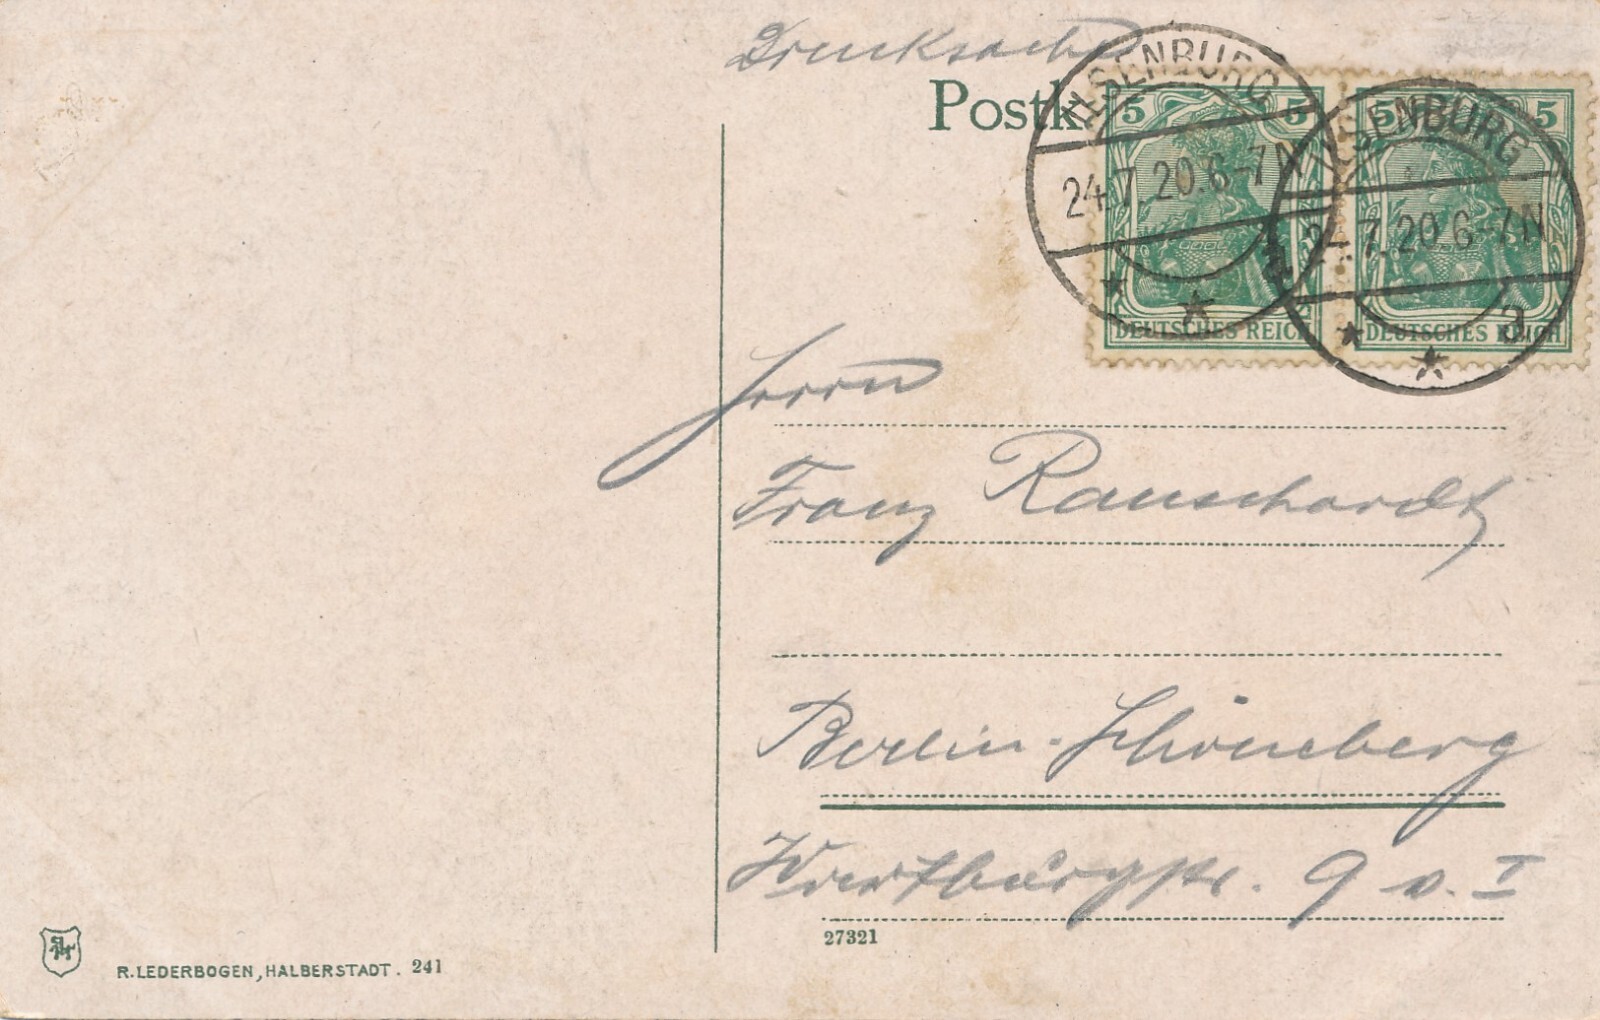 Drucksache
Postk
ILSENBURG
24.7.20.6-7N
ILSENBURG
7.20 6-7N
5 5
DEUTSCHES REICH
5 5
DEUTSCHES REICH
Herrn
Franz Rauschardt
Berlin-Schöneberg
Wartburgstr. 9 v. I
27321
R. LEDERBOGEN, HALBERSTADT. 241